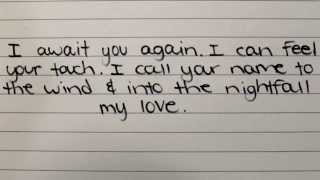 I await you again. I can feel
your toach. I call your name to
the wind & into the nightfall
my love.